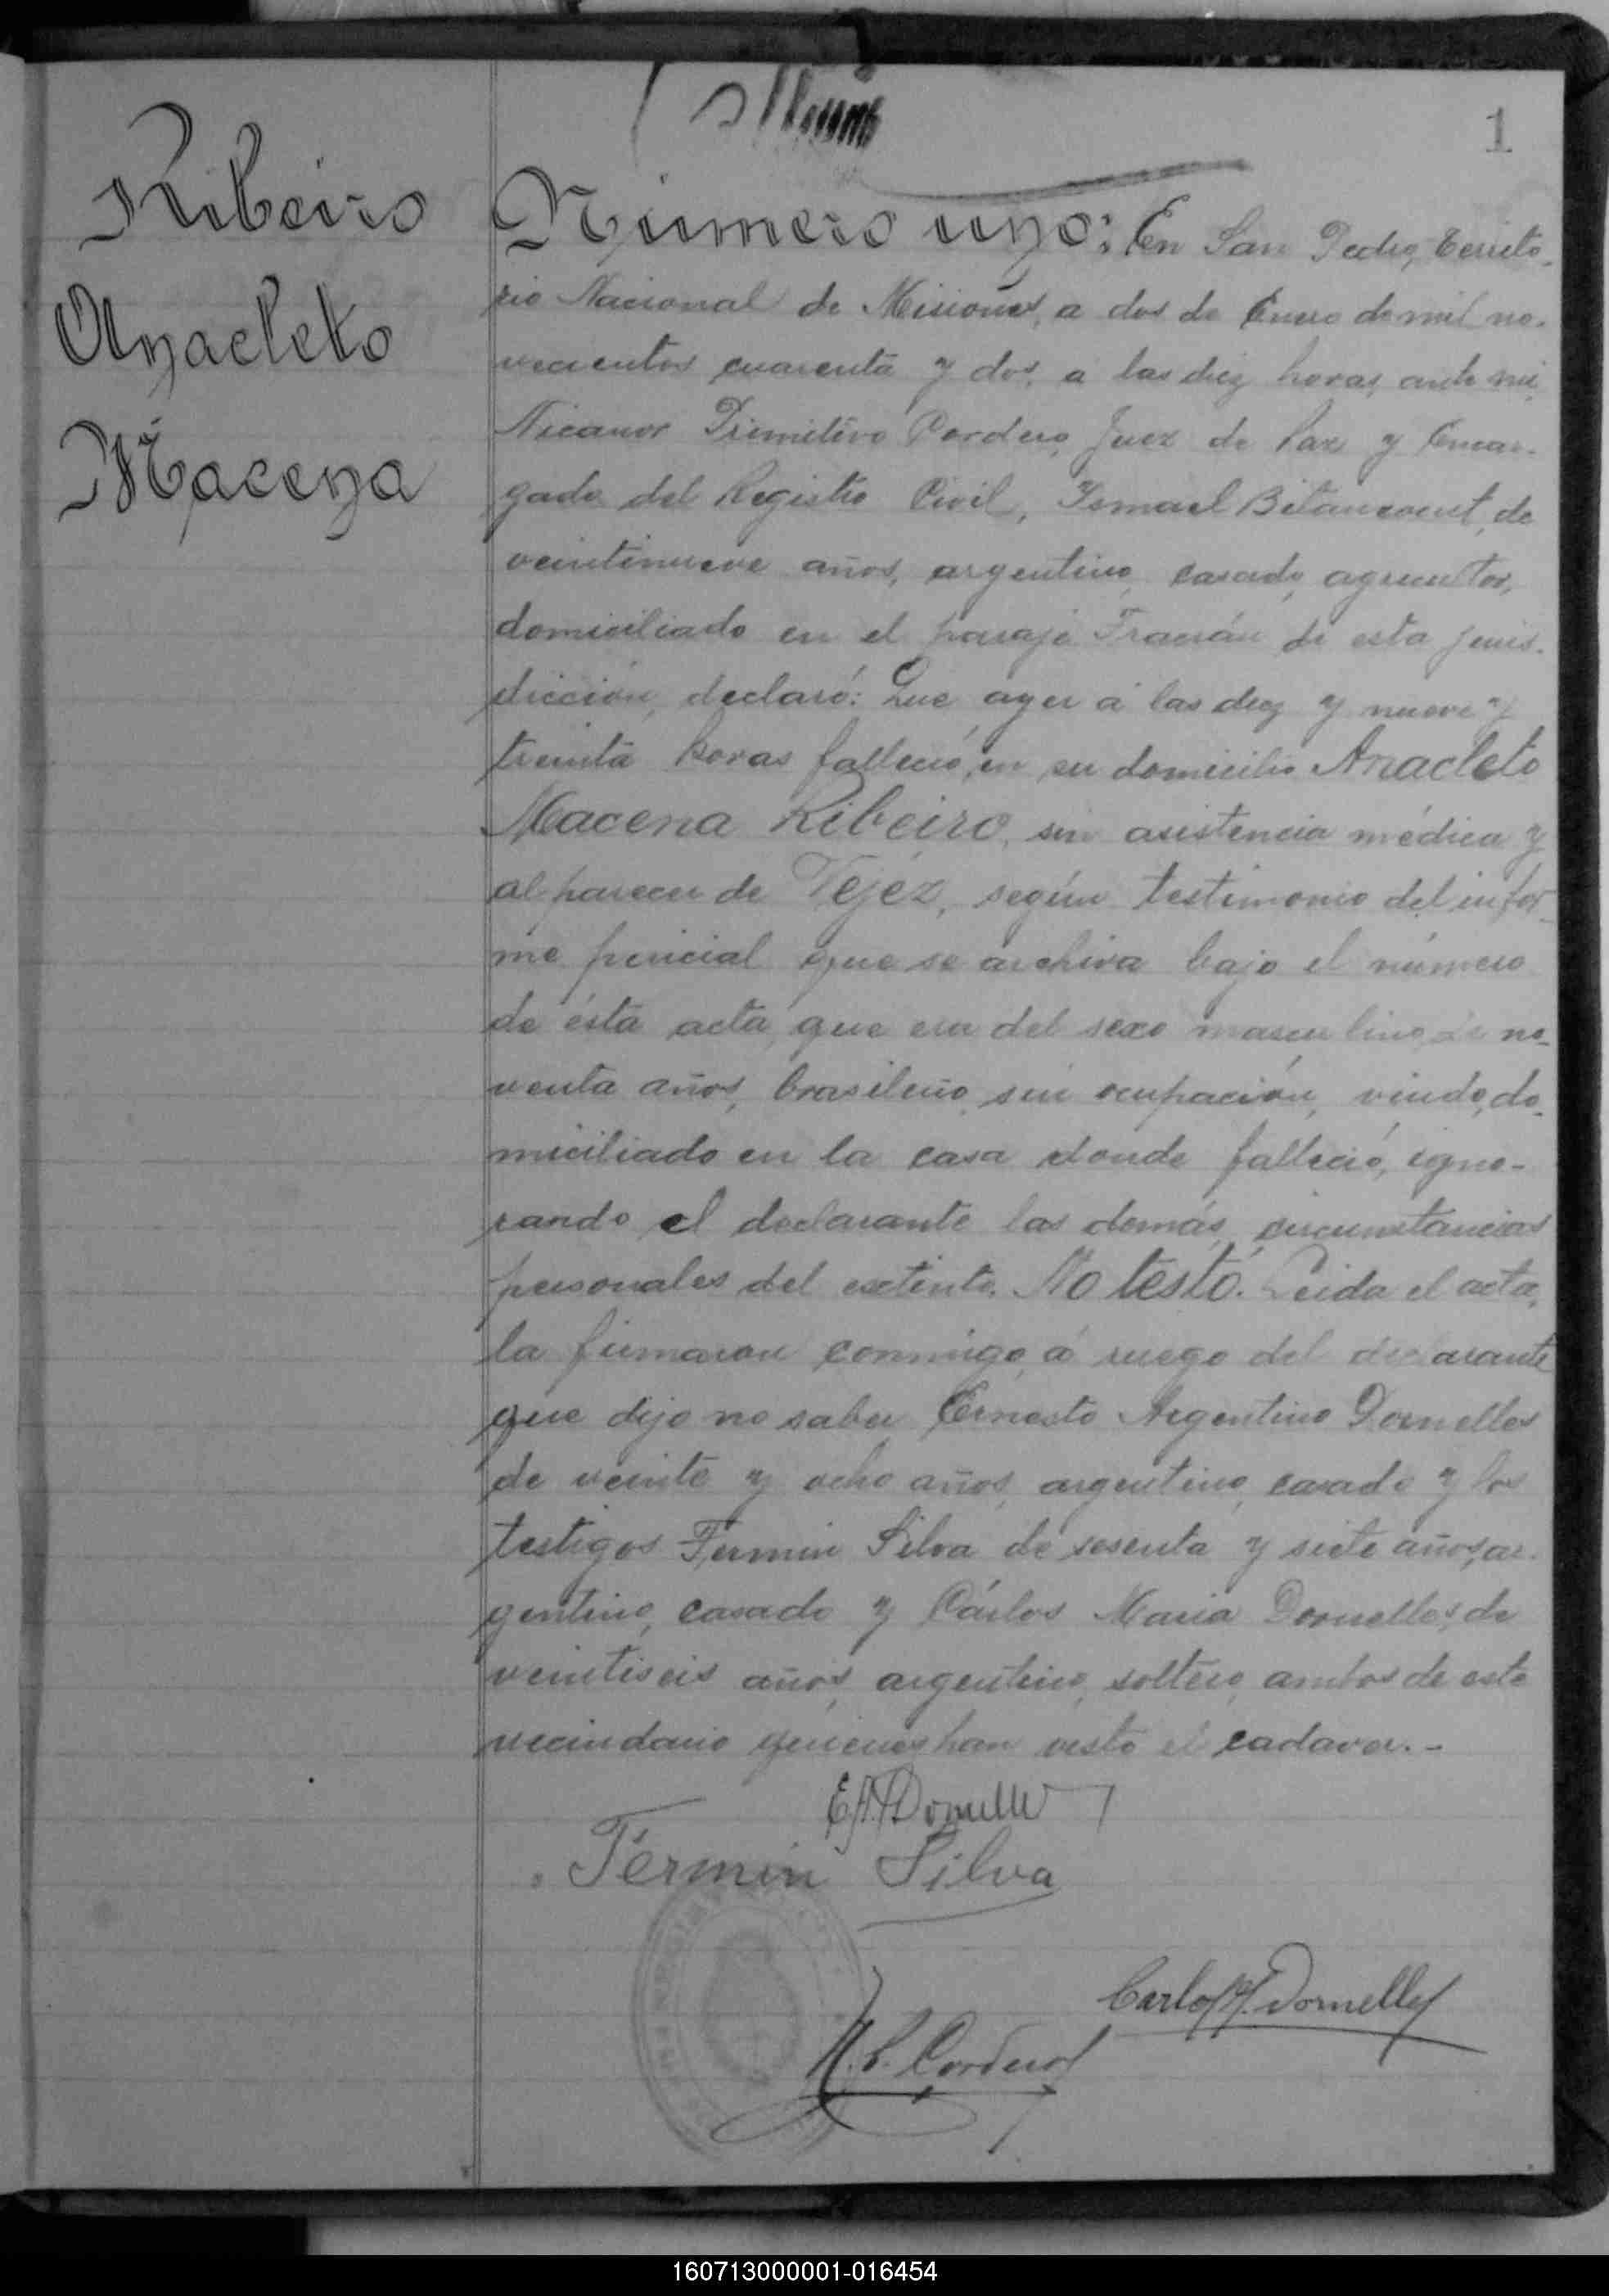 1
Ribeiro
Anacleto
Macena
Número uno: En San Pedro, Territo-
rio Nacional de Misiones, a dos de Enero de mil no-
vecientos cuarenta y dos, a las diez horas, ante mi,
Nicanor Primitivo Cordero, Juez de Paz y Encar-
gado del Registro Civil, Ismael Bitancourt, de
veintinueve años, argentino, casado, agricultor,
domiciliado en el paraje Fracrán de esta juris-
dicción, declaró: Que ayer á las diez y nueve y
treinta horas falleció, en su domicilio Anacleto
Macena Ribeiro, sin asistencia médica y
al parecer de Vejéz, según testimonio del infor-
me pericial que se archiva bajo el número
de ésta acta, que era del sexo masculino, de no-
venta años, brasileño, sin ocupación, viudo, do-
miciliado en la casa donde falleció, igno-
rando el declarante las demás circunstancias
personales del extinto. No testó. Leida el acta,
la firmaron conmigo, á ruego del declarante
que dijo no saber, Ernesto Argentino Dornelles
de veinte y ocho años, argentino, casado y los
testigos Fermin Silva de sesenta y siete años, ar-
gentino, casado y Cárlos Maria Dornelles, de
veintiseis años, argentino, soltero, ambos de este
vecindario quienes han visto el cadaver.-
E. A. Dornelles
Fermin Silva
Carlos M. Dornelles
N. P. Cordero
160713000001-016454